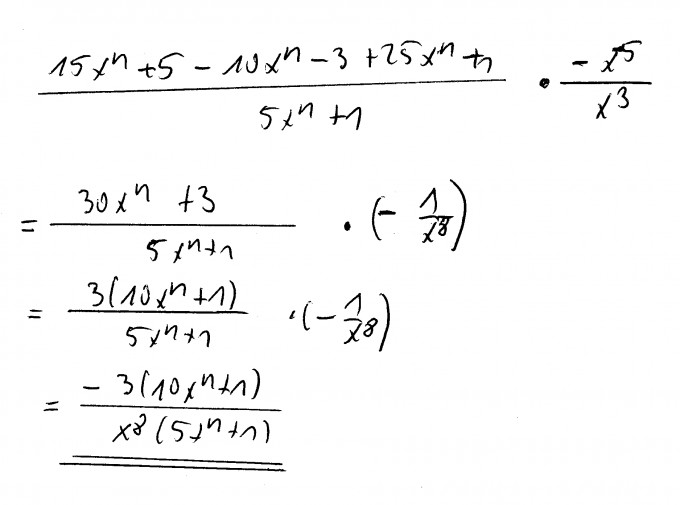 (15xⁿ + 5 - 10xⁿ - 3 + 25xⁿ + 1)/(5xⁿ + 1) · (-x⁵)/(x³)
= (30xⁿ + 3)/(5xⁿ+1) · (- 1/x⁸)
= 3(10xⁿ+1)/(5xⁿ+1) · (- 1/x⁸)
= -3(10xⁿ+1)/(x⁸(5xⁿ+1))